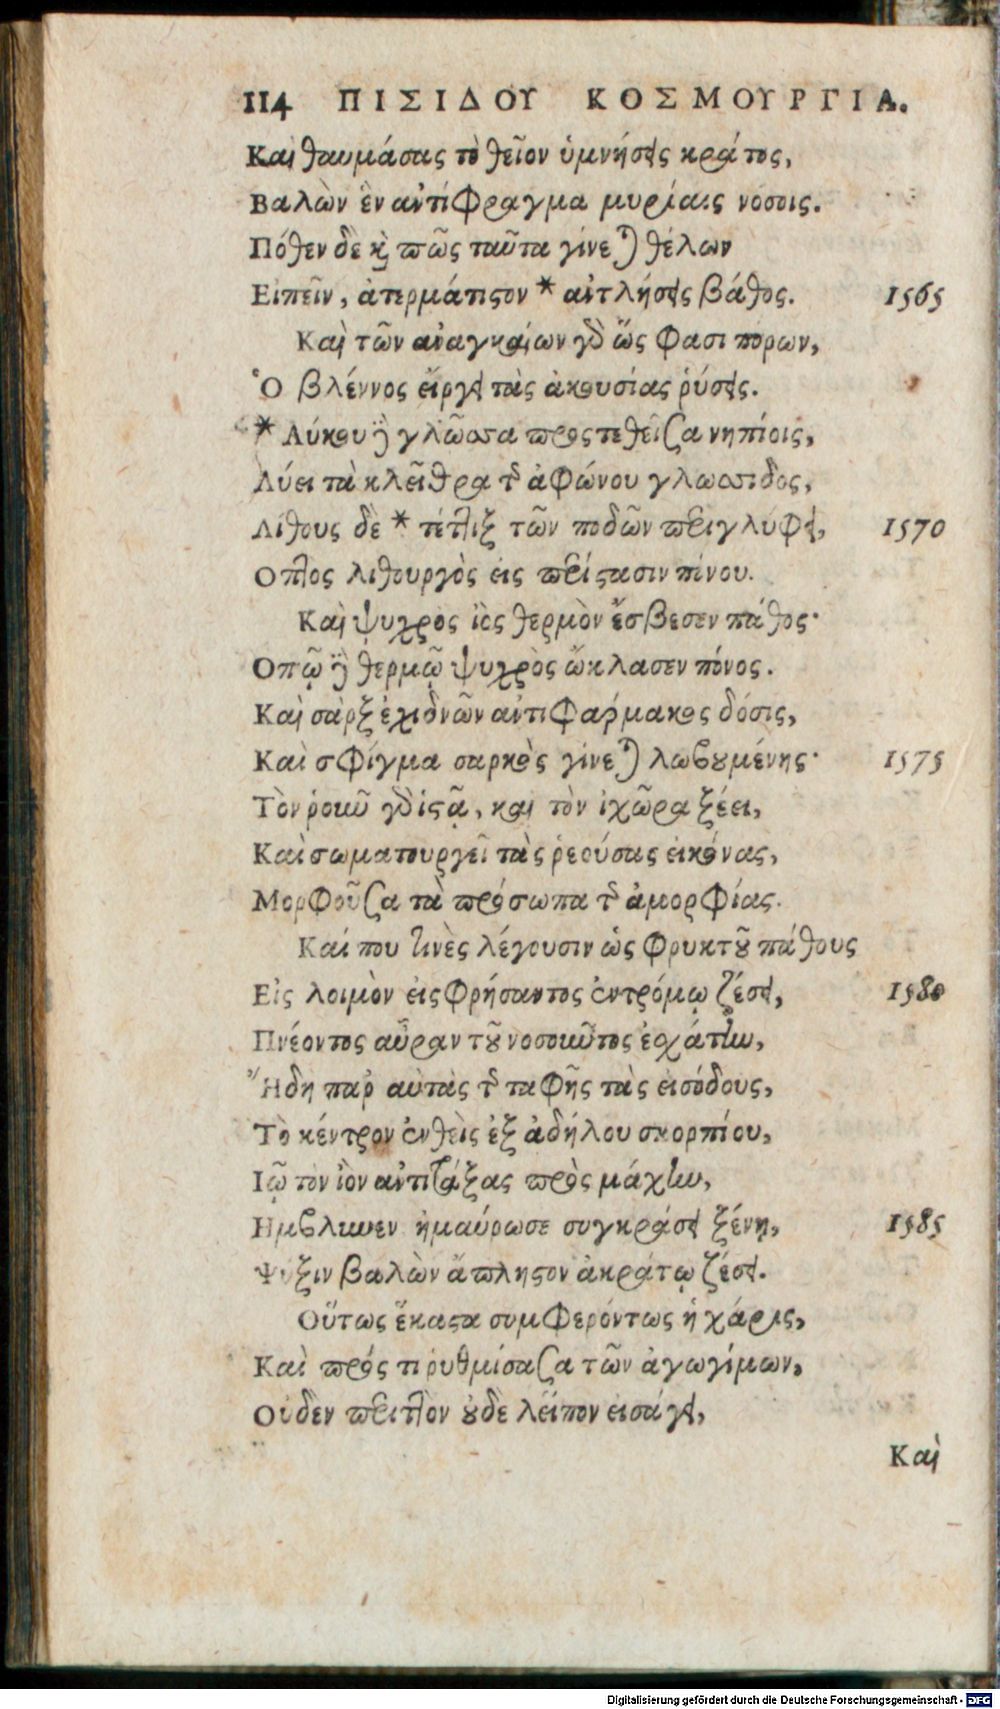 114 ΠΙΣΙΔΟΥ ΚΟΣΜΟΥΡΓΙΑ.
Καὶ θαυμάσας τὸ θεῖον ὑμνήσεις κράτος,
Βαλὼν ἓν ἀντίφραγμα μυρίαις νόσοις.
Πόθεν δὲ καὶ πῶς ταῦτα γίνεται θέλων
Εἰπεῖν, ἀτερμάτιστον * ἀντλήσεις βάθος. 1565
Καὶ τῶν ἀναγκαίων γὰρ ὥς φασι πόρων,
Ὁ βλέννος εἴργει τὰς ἀκουσίας ῥύσεις.
* Λύκου δὲ γλῶσσα προστεθεῖσα νηπίοις,
Λύει τὰ κλεῖθρα τῆς ἀφώνου γλωσσίδος,
Λίθους δὲ * τέττιξ τῶν ποδῶν περιγλύφει, 1570
Οπτὸς λιθουργὸς εἰς περίστασιν πόνου.
Καὶ ψυχρὸς ἰὸς θερμὸν ἔσβεσεν πάθος·
Οπῷ δὲ θερμῷ ψυχρὸς ὤκλασεν πόνος.
Καὶ σὰρξ ἐχιδνῶν ἀντιφάρμακος δόσις,
Καὶ σφίγμα σαρκὸς γίνεται λωβουμένης· 1575
Τὸν ῥοῦν γὰρ ἱστᾷ, καὶ τὸν ἰχῶρα ξέει,
Καὶ σωματουργεῖ τὰς ῥεούσας εἰκόνας,
Μορφοῦσα τὰ πρόσωπα τῆς ἀμορφίας.
Καί που τινὲς λέγουσιν ὡς φρυκτοῦ πάθους
Εἰς λοιμὸν εἰσφρήσαντος ἐντρόμῳ ζέσει, 1580
Πνέοντος αὖραν τοῦ νοσοῦντος ἐσχάτην,
Ἤδη παρ' αὐτὰς τῆς ταφῆς τὰς εἰσόδους,
Τὸ κέντρον ἐνθεὶς ἐξ ἀδήλου σκορπίου,
Ιῷ τὸν ἰὸν ἀντιτάξας πρὸς μάχην,
Ημβλυνεν ἠμαύρωσε συγκράσει ξένῃ, 1585
Ψύξιν βαλὼν ἄπληστον ἀκράτῳ ζέσει.
Οὕτως ἕκαστα συμφερόντως ἡ χάρις,
Καὶ πρός τι ῥυθμίσασα τῶν ἀγωγίμων,
Οὐδὲν περιττὸν οὐδὲ λεῖπον εἰσάγει,
Καὶ
Digitalisierung gefördert durch die Deutsche Forschungsgemeinschaft - DFG